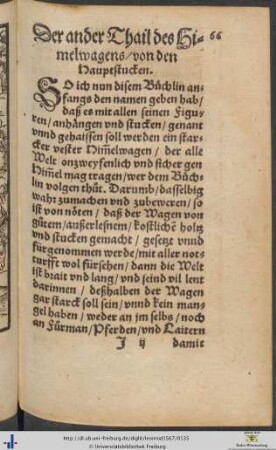 Der ander Thail des Hi- 66
melwagens/von den
Hauptstucken.
SO ich nun disem Büchlin an-
fangs den namen geben hab/
daß es mit allen seinen Figu-
ren/anhängen vnd stucken/genant
vnnd gehaissen soll werden ein star-
cker vester Him̃elwagen/ der alle
Welt onzweyfenlich vnd sicher gen
Him̃el mag tragen/wer dem Büch-
lin volgen thůt. Darumb/dasselbig
wahr zumachen vnd zubeweren/ so
ist von nöten/ daß der Wagen von
gůtem/außerleßnem/ kostlichẽ holtz
vnd stucken gemacht/ gesetzt vnnd
fürgenommen werde/mit aller not-
turfft wol fürsehen/ dann die Welt
ist brait vnd lang/ vnd seind vil leut
darinnen / deßhalben der Wagen
gar starck soll sein/vnnd kein man-
gel haben/ weder an jm selbs/ noch
an Fůrman/Pferden/vnd Laitern
J ij damit
http://dl.ub.uni-freiburg.de/diglit/leonrod1567/0135
© Universitätsbibliothek Freiburg
Baden-Württemberg